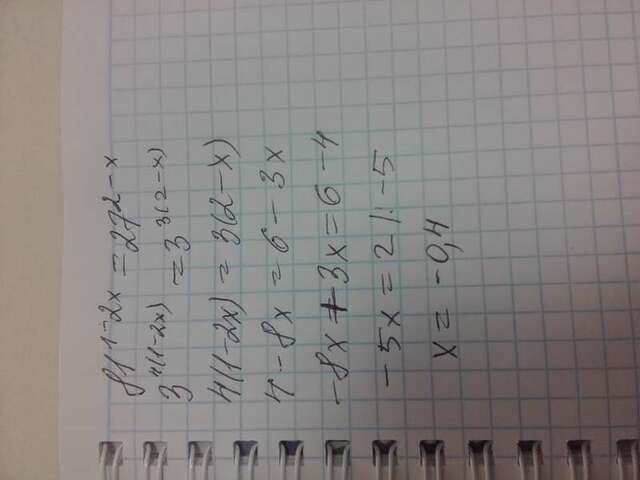 81^{1-2x} = 27^{2-x}
3^{4(1-2x)} = 3^{3(2-x)}
4(1-2x) = 3(2-x)
4-8x = 6-3x
-8x+3x=6-4
-5x = 2 |: -5
x = -0,4